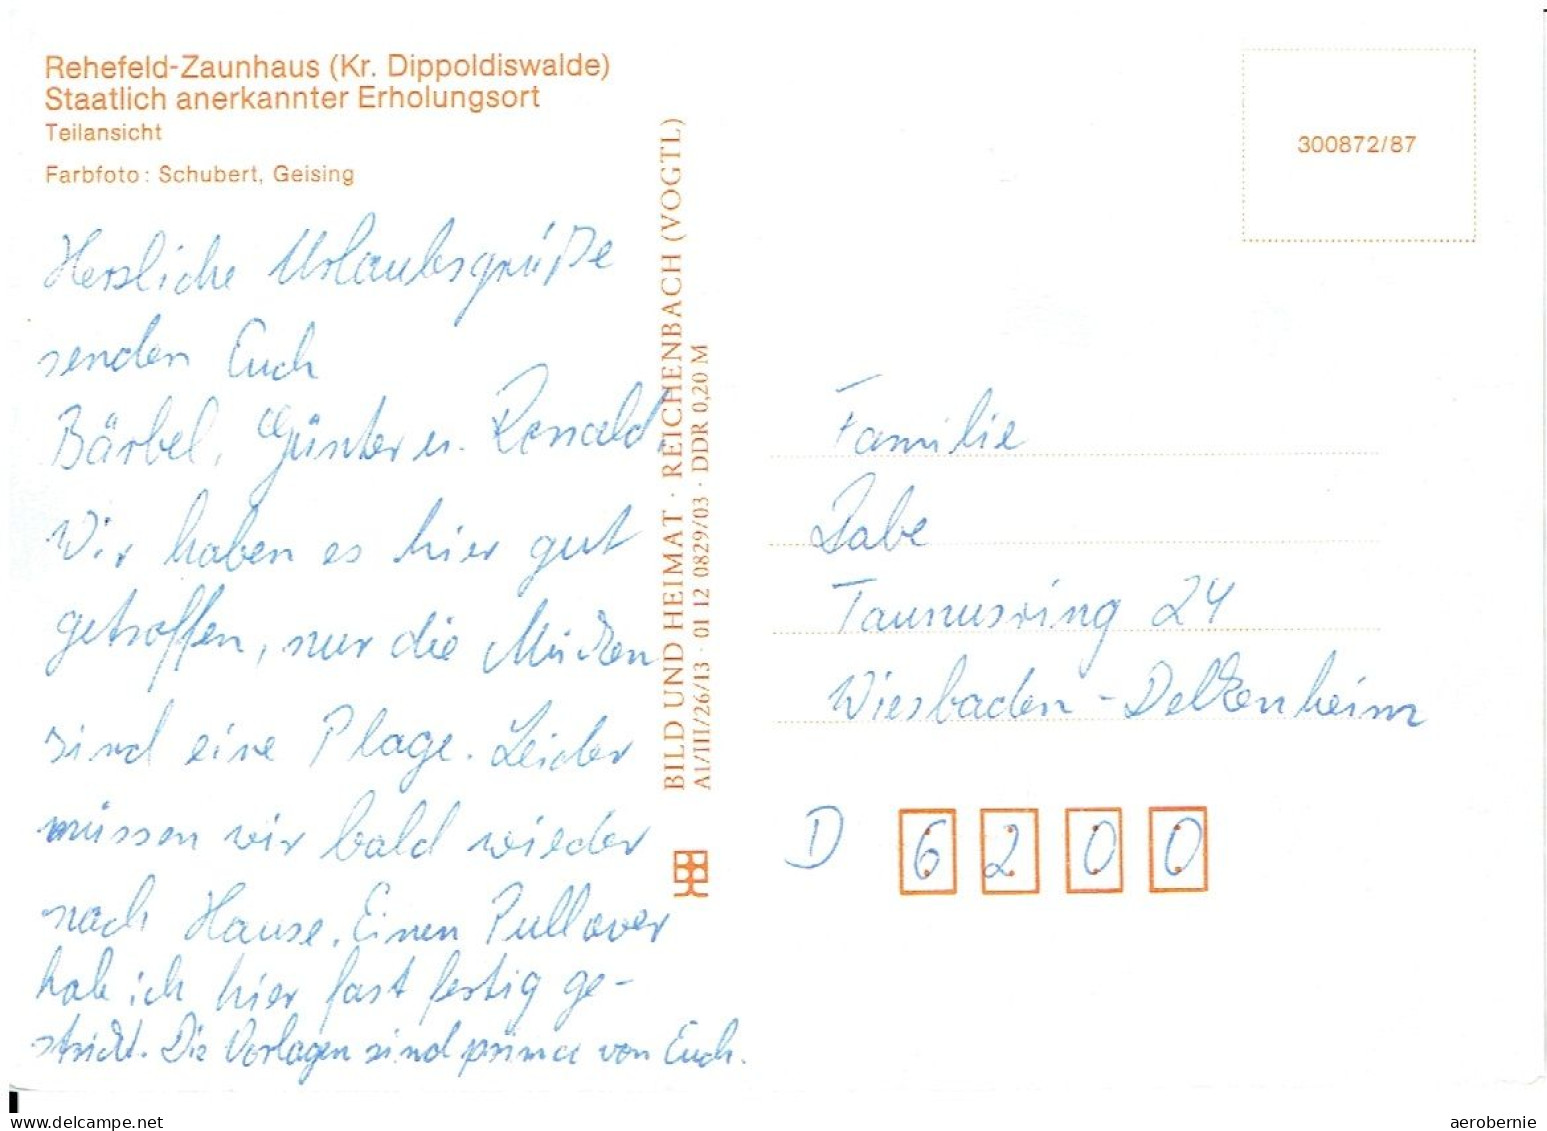 Rehefeld-Zaunhaus (Kr. Dippoldiswalde)
Staatlich anerkannter Erholungsort
Teilansicht
Farbfoto: Schubert, Geising
Herzliche Urlaubsgrüße
senden Euch
Bärbel, Günter u. Ronald.
Wir haben es hier gut
getroffen, nur die Mücken
sind eine Plage. Leider
müssen wir bald wieder
nach Hause. Einen Pullover
hab ich hier fast fertig ge-
strickt. Die Vorlagen sind prima von Euch.
BILD UND HEIMAT · REICHENBACH (VOGTL)
A1/III/26/13 · 01 12 0829/03 · DDR 0,20 M
300872/87
Familie
Rabe
Taunusring 24
Wiesbaden - Delkenheim
D 6200
hosted on www.delcampe.net
aerobernie